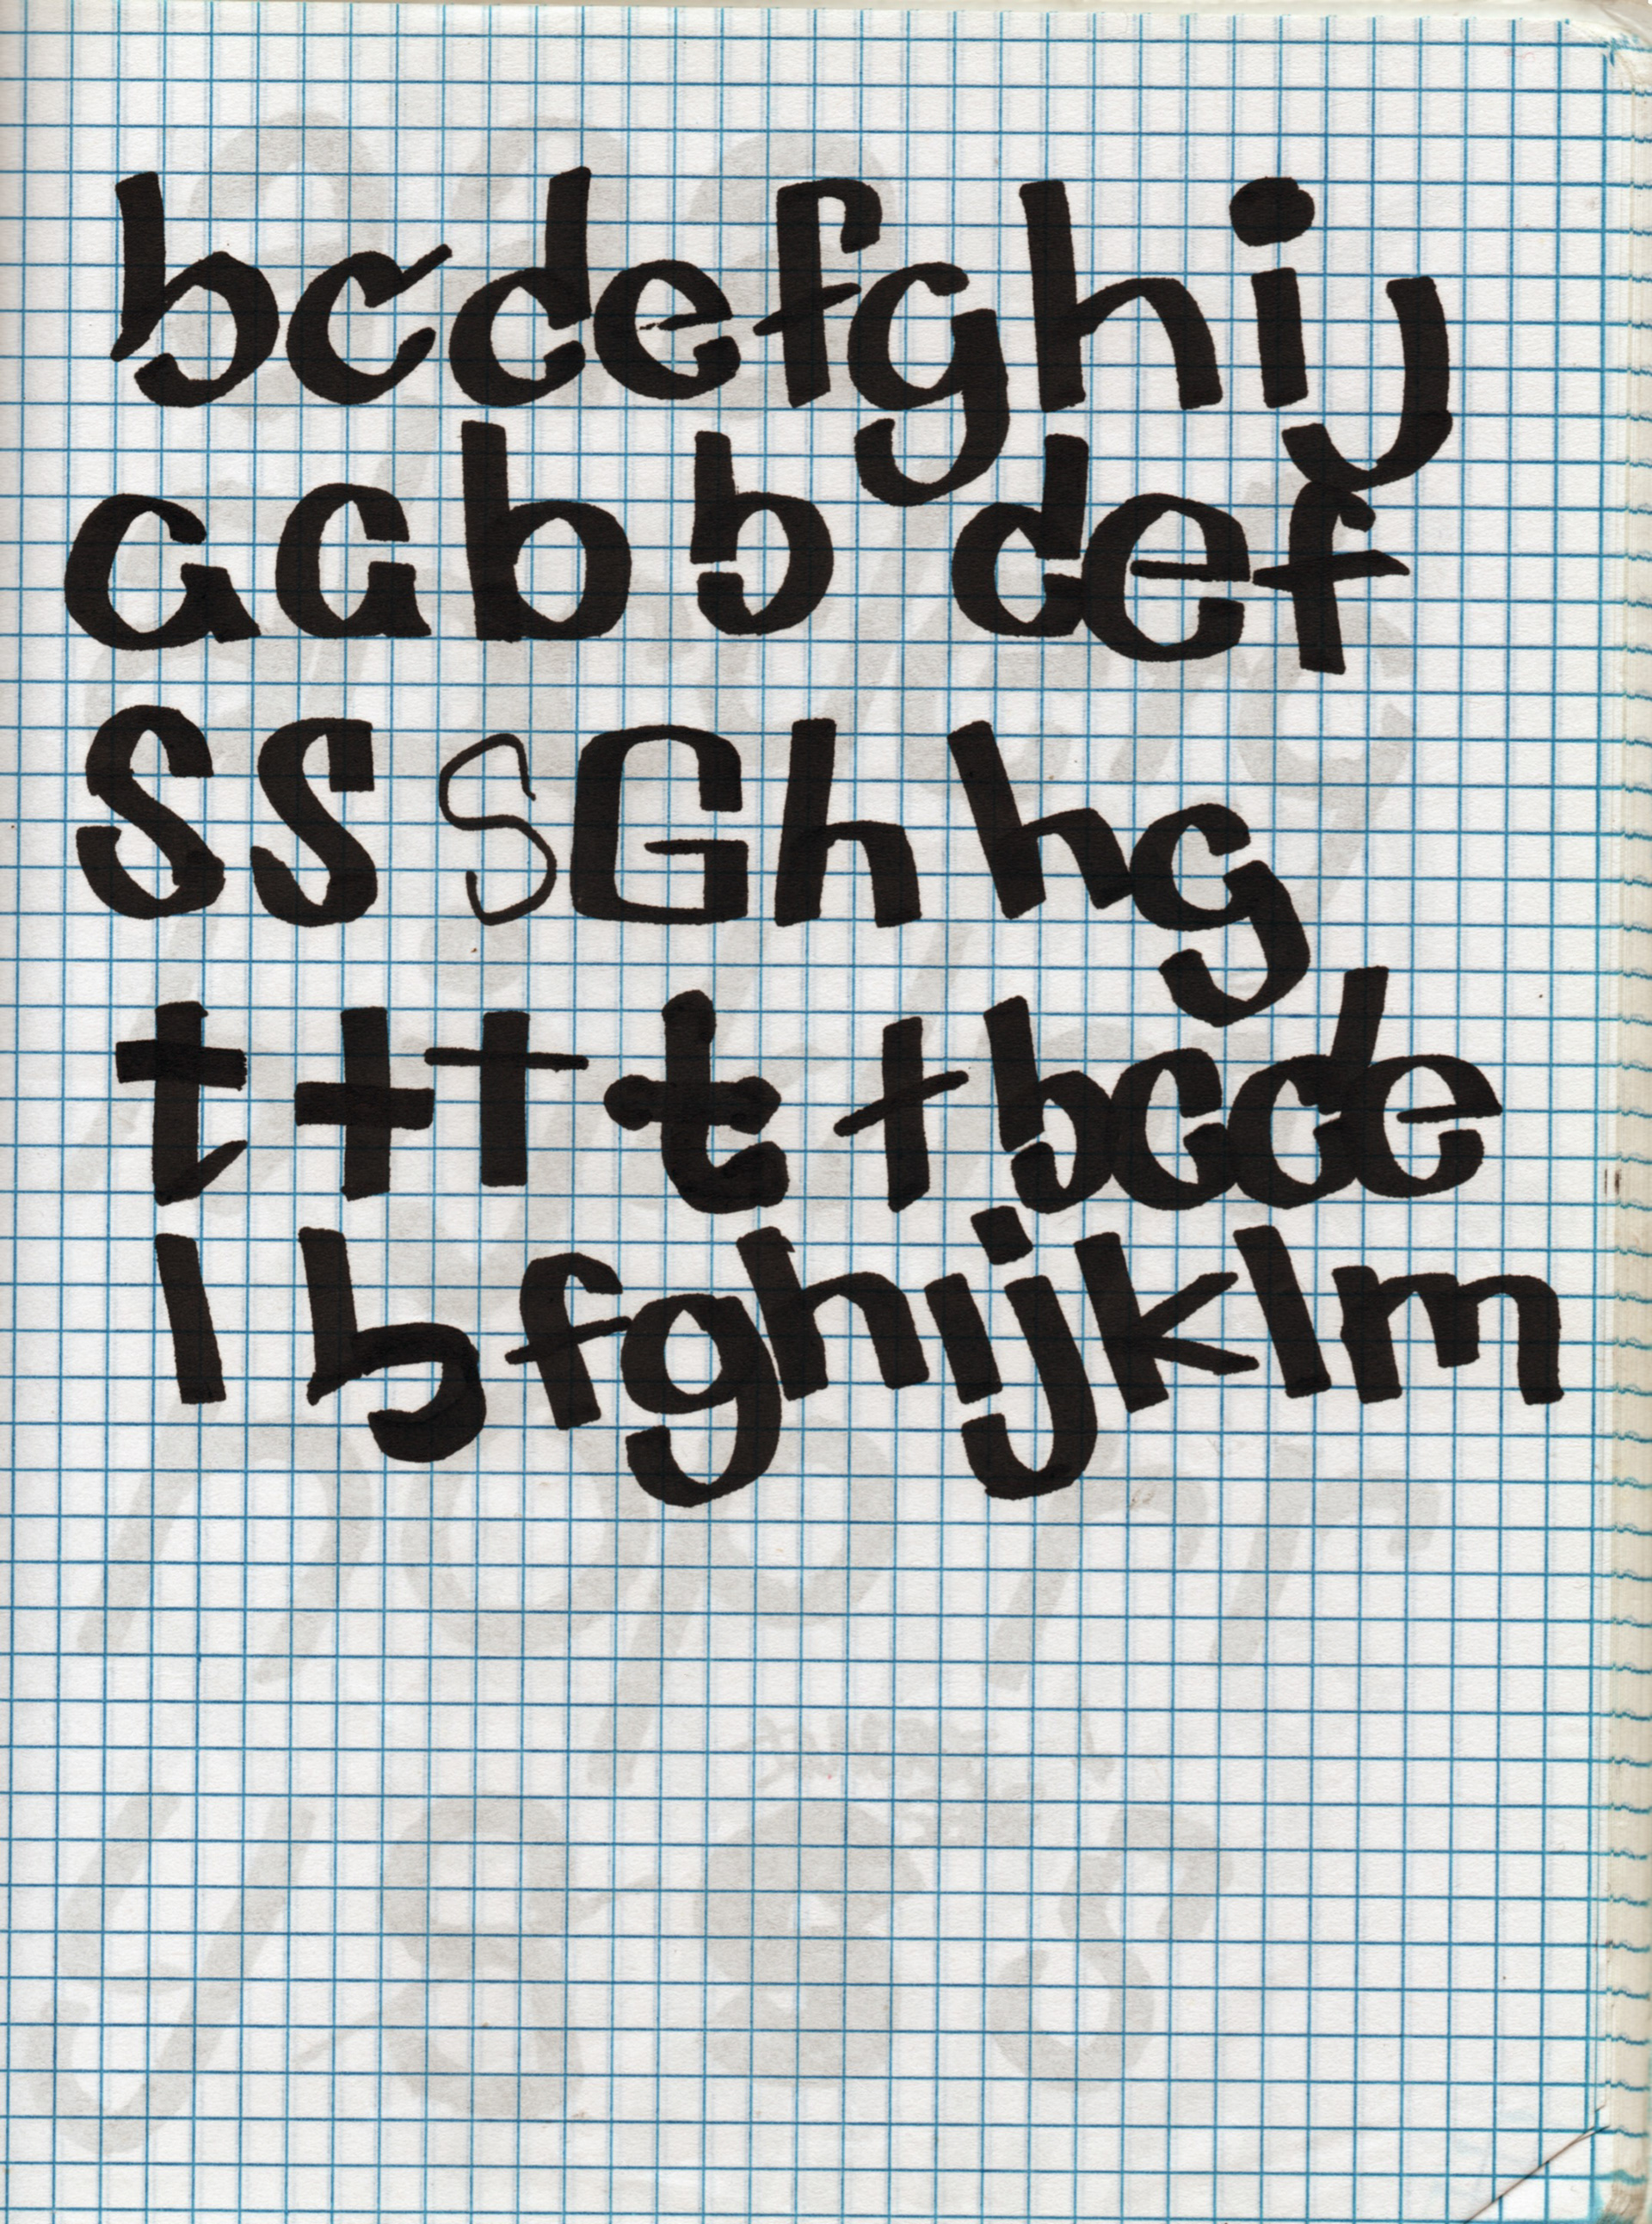 bcdefghij
a a b b def
S S S G h hg
t t t t t bcde
l b fghijklm